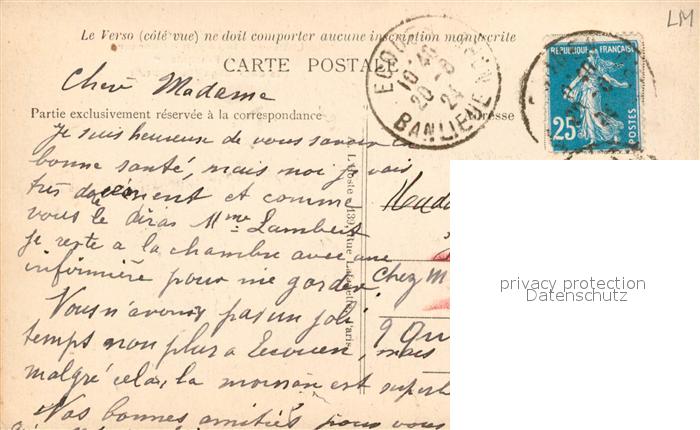 LM
Le Verso (côté vue) ne doit comporter aucune inscription manuscrite
CARTE POSTALE
ECOUEN
10·40
20-8
24
BANLIEUE
REPUBLIQUE FRANÇAISE
25c
POSTES
Partie exclusivement réservée à la correspondance
Adresse
Chère Madame
Je suis heureuse de vous savoir en
bonne santé, mais moi je vais
très doucement et comme
vous le diras Mme Lambert
je reste a la chambre avec une
infirmière pour me garder.
Vous n'avons pas un joli
temps non plus a Ecouen, mais
malgré cela, la moisson est superbe
Nos bonnes amitiés pour vous
L'Hoste, 139, Rue Lafayette, Paris.
Mada
Chez M
9 Qu
privacy protection
Datenschutz